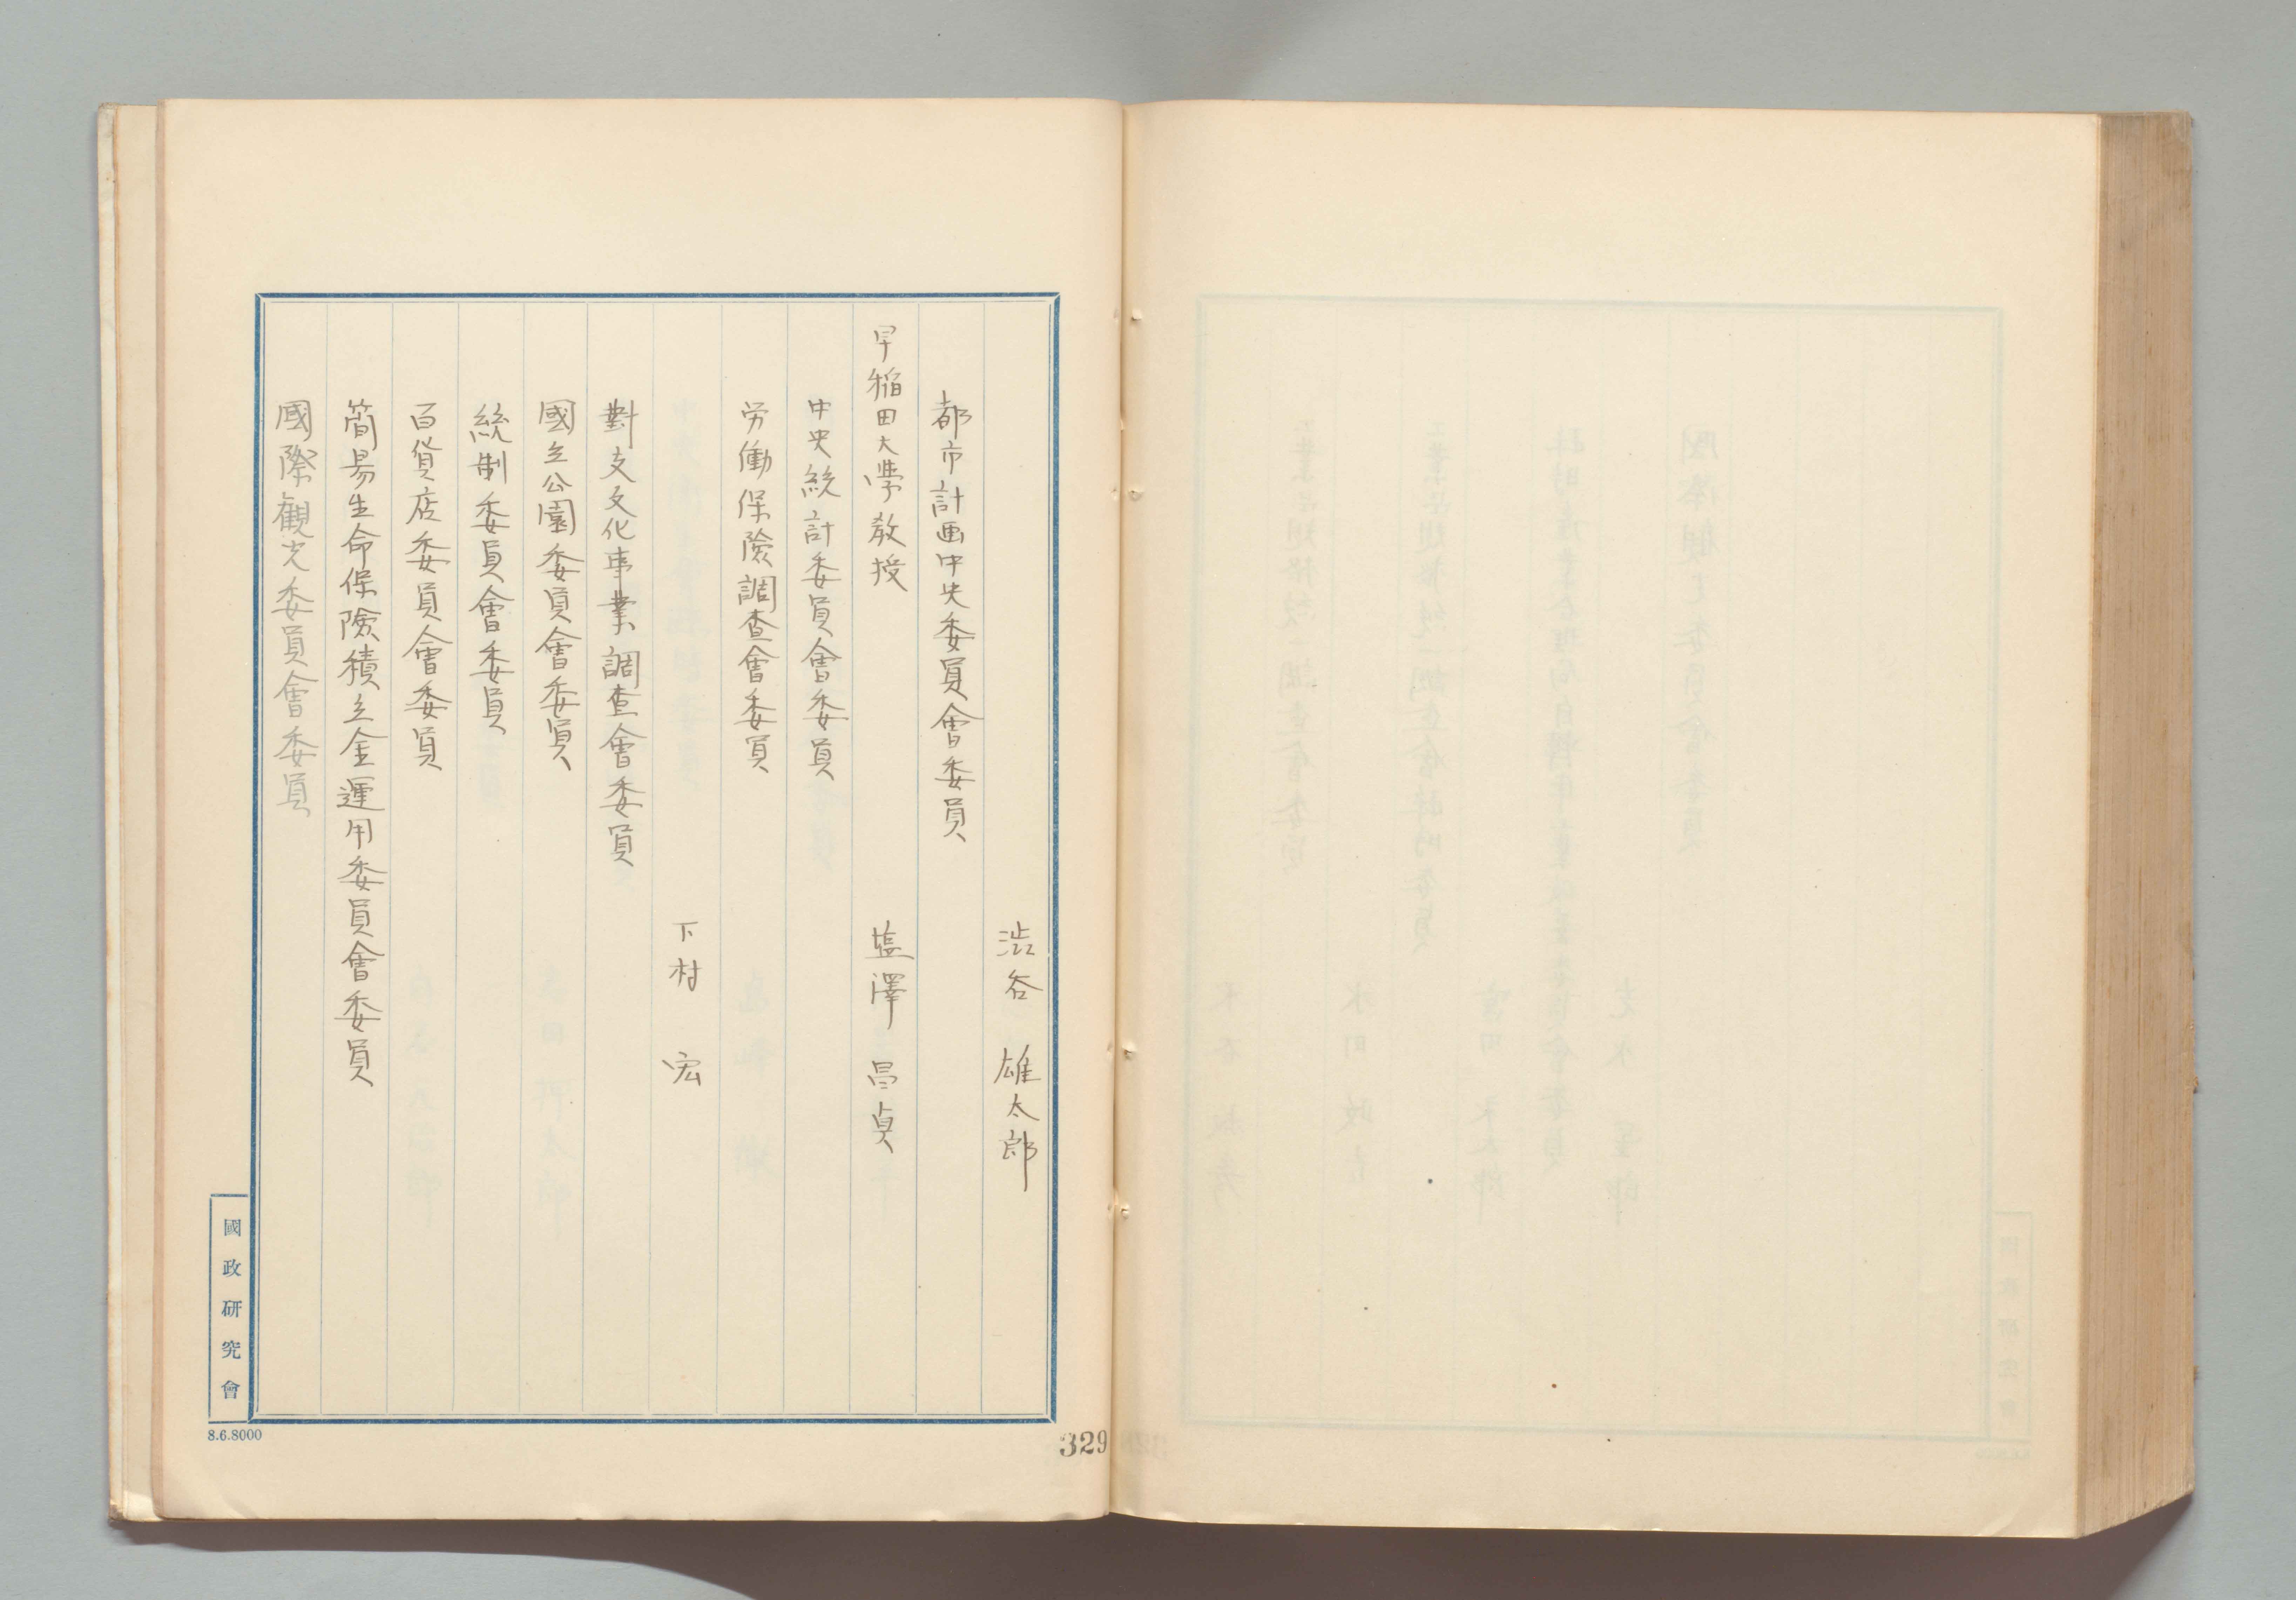 渋谷 雄太郎
都市計画中央委員會委員
早稲田大學教授 塩澤 昌貞
中央統計委員會委員
労働保険調査會委員
下村 宏
對支文化事業調査會委員
國立公園委員會委員
統制委員會委員
百貨店委員會委員
簡易生命保険積立金運用委員會委員
國際観光委員會委員
國政研究會
8.6.8000
329